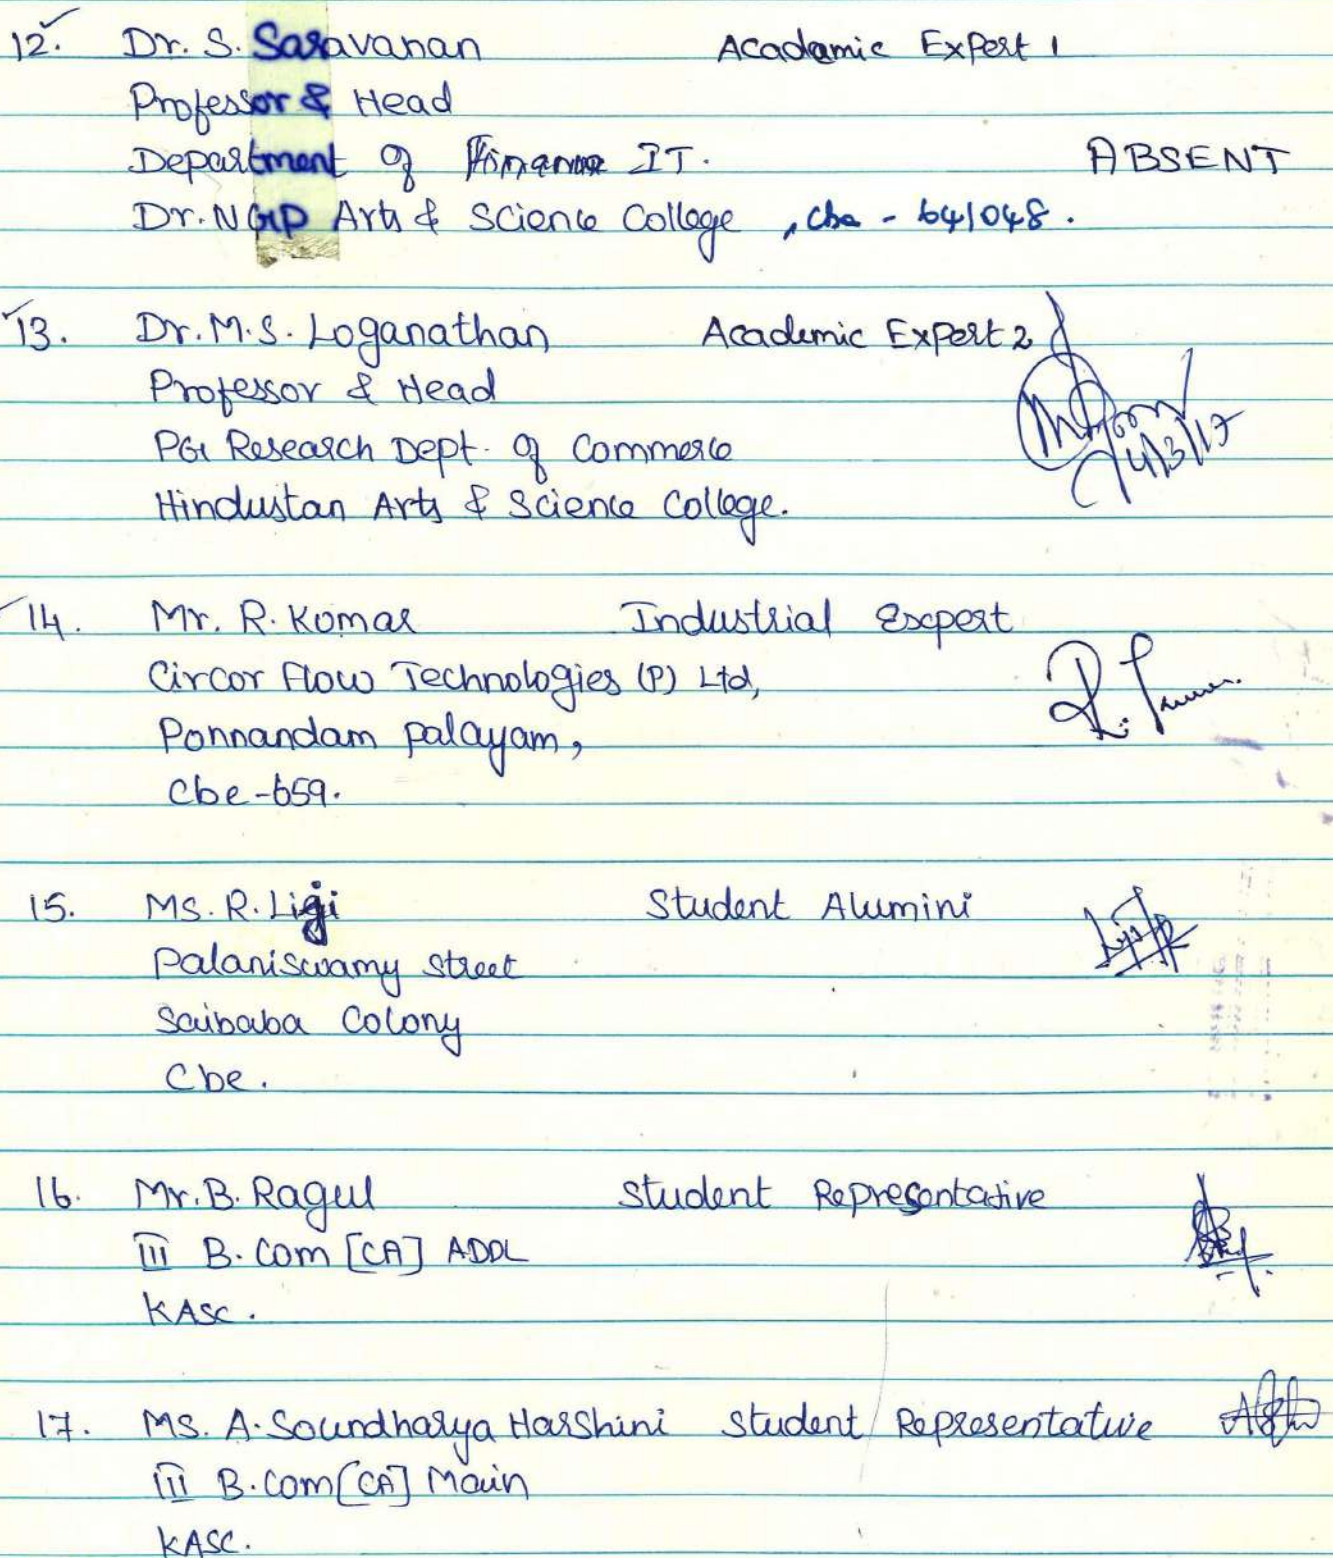 12. Dr. S. Saravanan Academic Expert 1
Professor & Head
Department of IT. ABSENT
Dr. NGP Arts & Science College, Cbe - 641048.
13. Dr. M.S. Loganathan Academic Expert 2
Professor & Head
PG Research Dept. of Commerce 4/3/17
Hindustan Arts & Science College.
14. Mr. R. Kumar Industrial Expert
Circor Flow Technologies (P) Ltd,
Ponnandam palayam,
Cbe-659.
15. Ms. R. Ligi Student Alumini
Palaniswamy Street
Saibaba Colony
Cbe.
16. Mr. B. Ragul Student Representative
III B.Com [CA] ADDL
KASC.
17. Ms. A. Soundharya Harshini Student Representative
III B.Com [CA] Main
KASC.